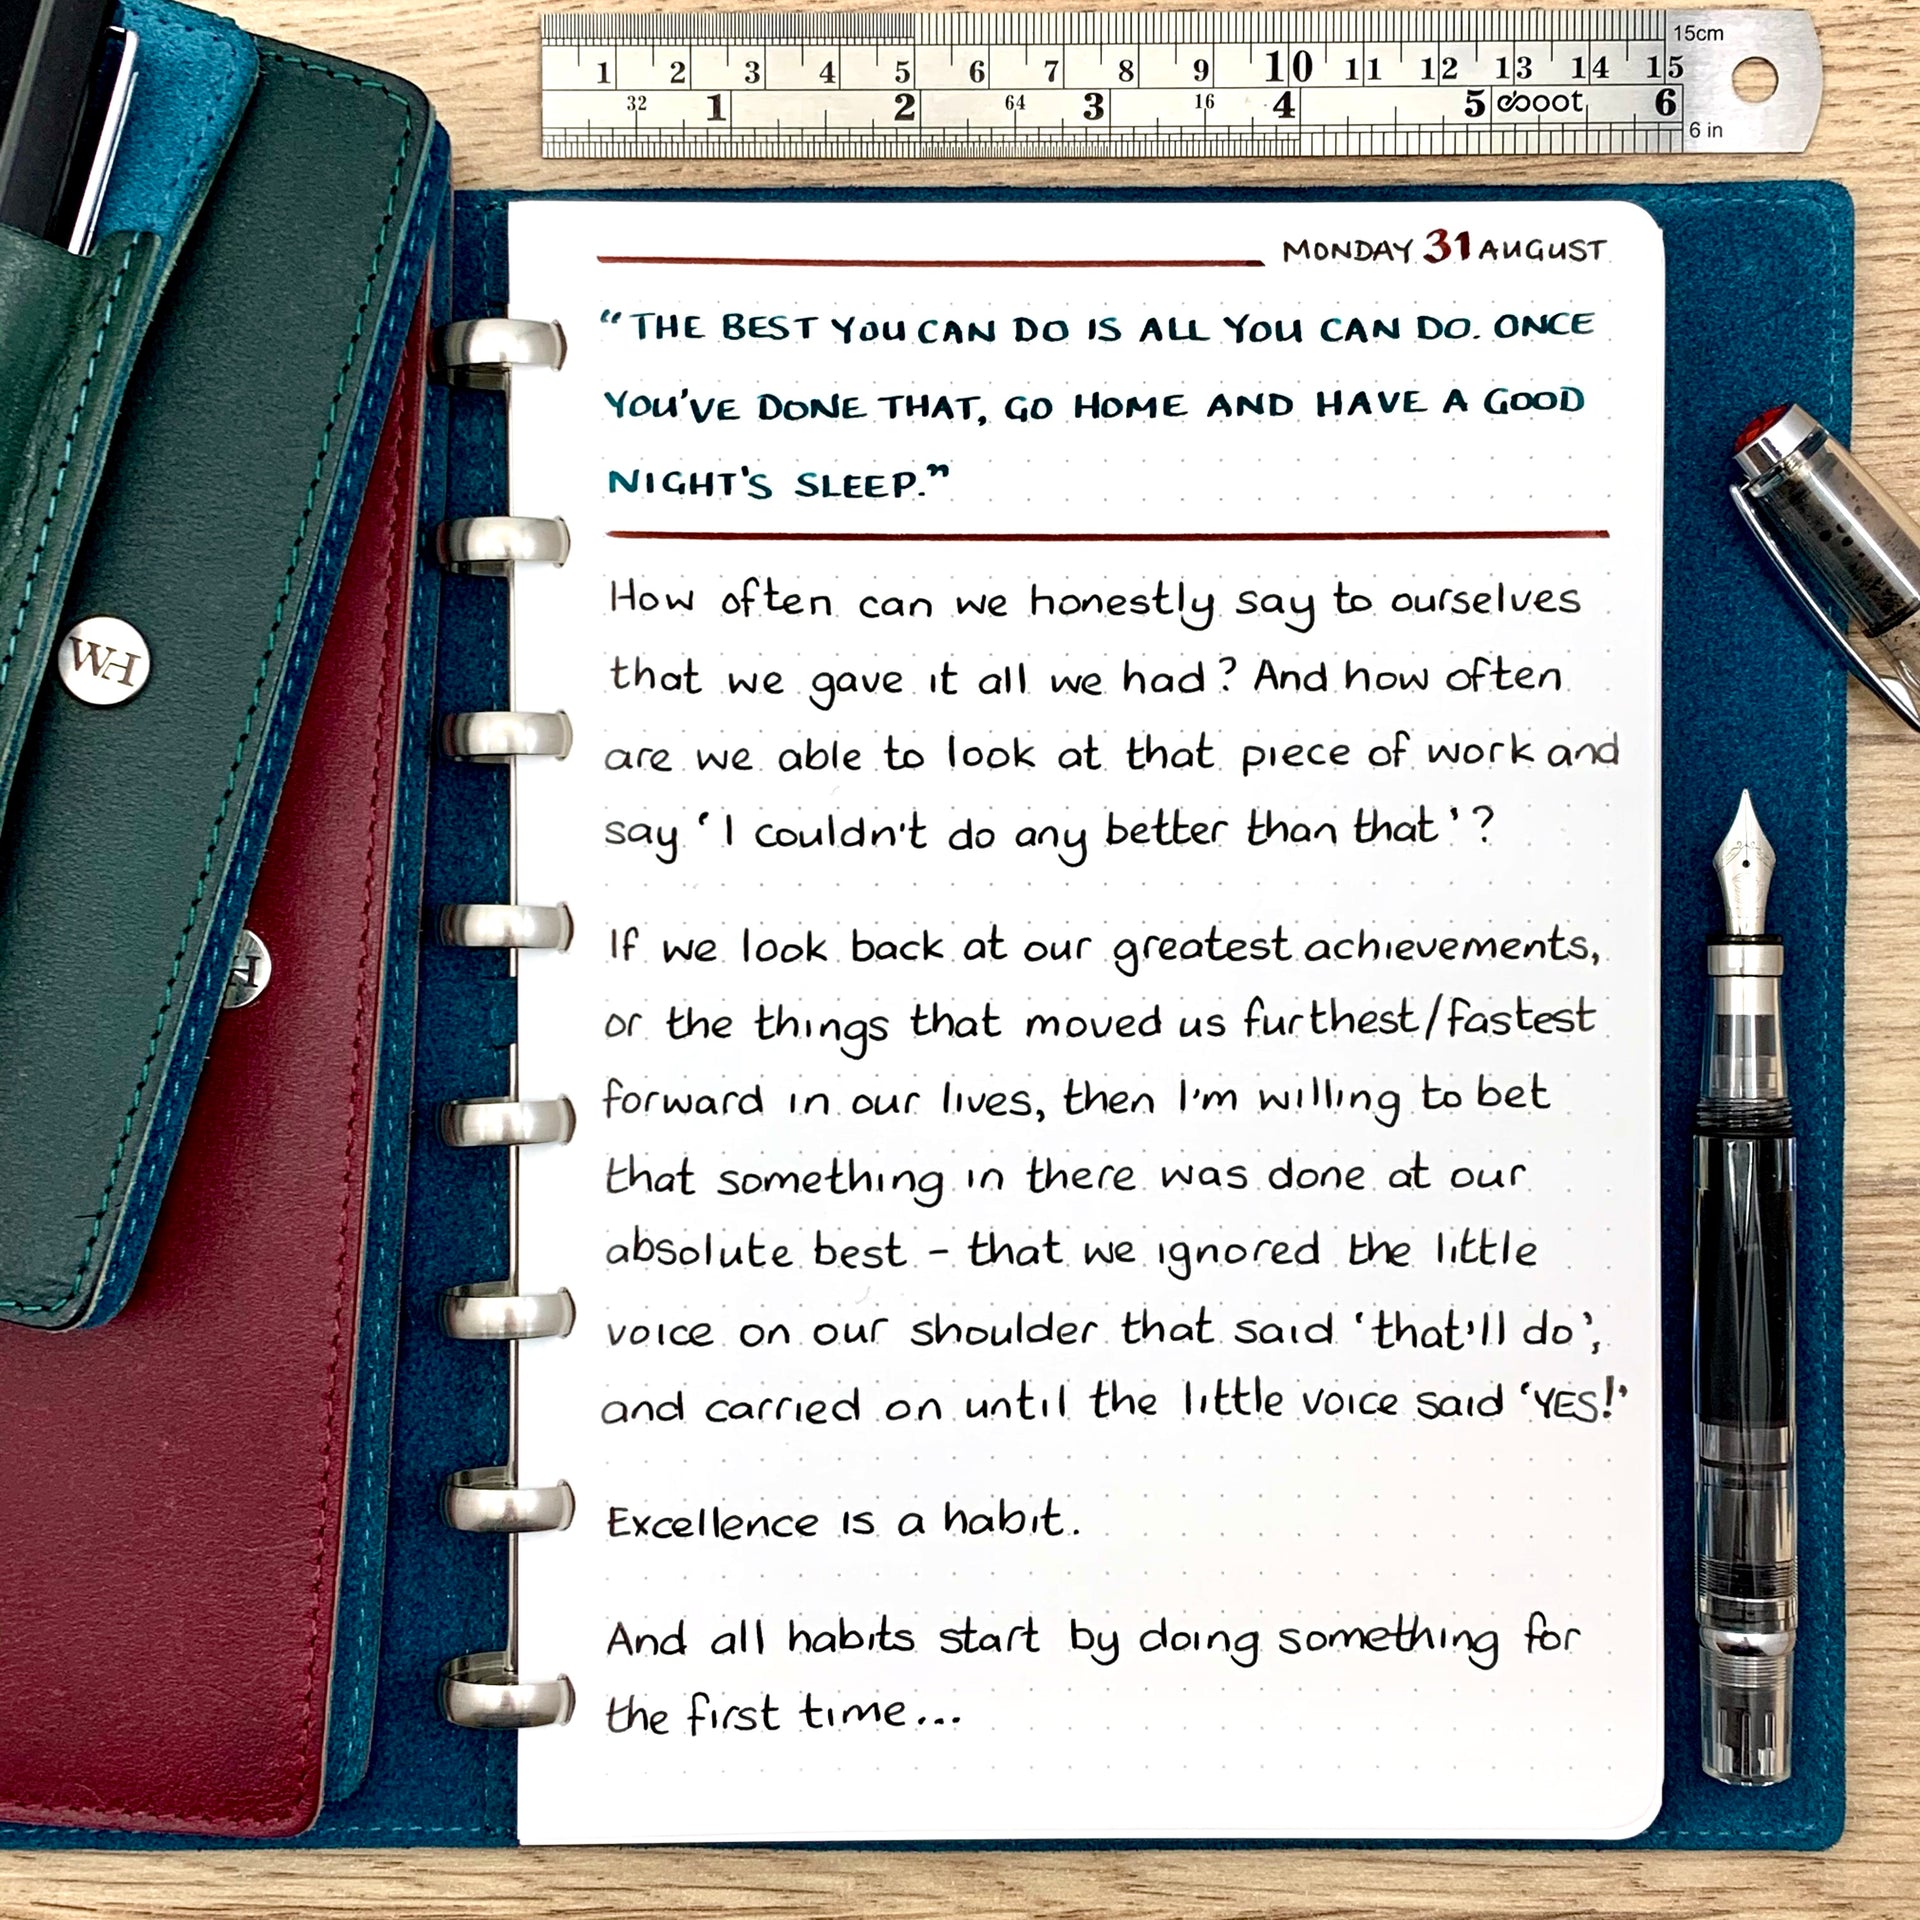 15cm
1 2 3 4 5 6 7 8 9 10 11 12 13 14 15
32 1 2 64 3 16 4 5 6
6 in
MONDAY 31 AUGUST
“THE BEST YOU CAN DO IS ALL YOU CAN DO. ONCE
YOU'VE DONE THAT, GO HOME AND HAVE A GOOD
NIGHT'S SLEEP.”
How often can we honestly say to ourselves
that we gave it all we had? And how often
are we able to look at that piece of work and
say ‘I couldn't do any better than that’?
If we look back at our greatest achievements,
or the things that moved us furthest/fastest
forward in our lives, then I'm willing to bet
that something in there was done at our
absolute best - that we ignored the little
voice on our shoulder that said ‘that'll do’,
and carried on until the little voice said ‘YES!’
Excellence is a habit.
And all habits start by doing something for
the first time...
WH